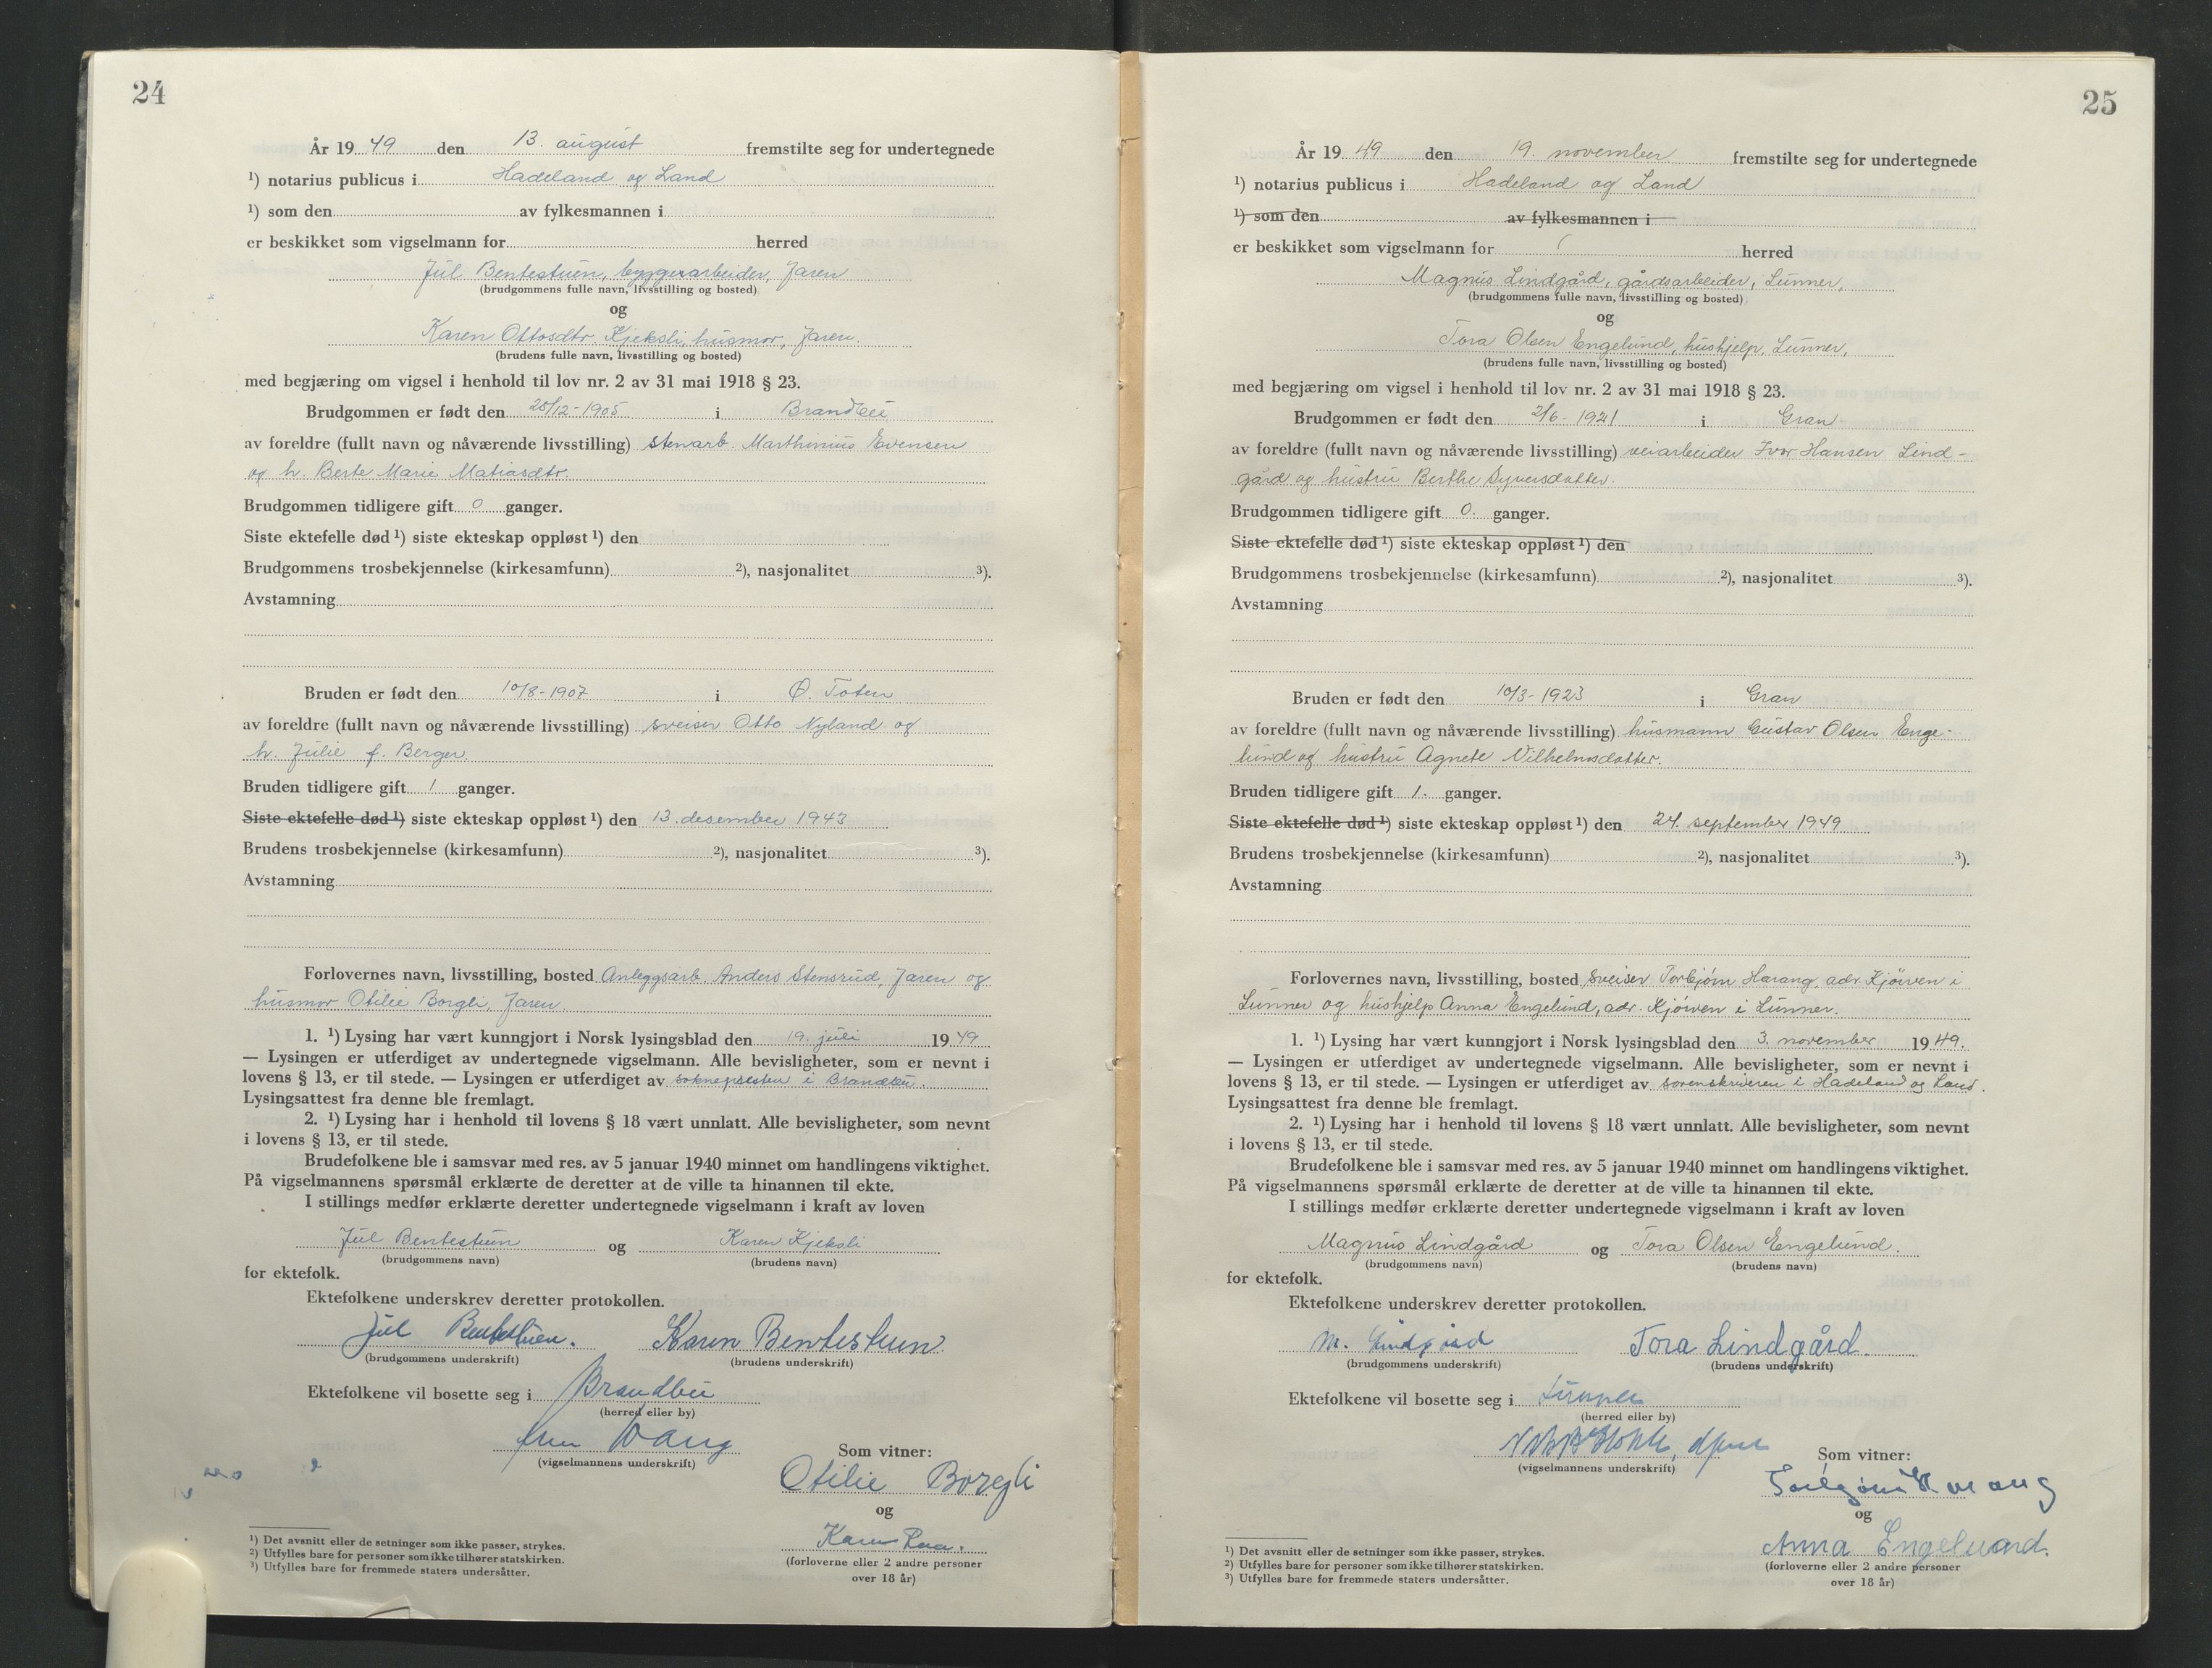 24
År 19 49 den 13. august fremstilte seg for undertegnede
¹) notarius publicus i Hadeland og Land
¹) som den av fylkesmannen i
er beskikket som vigselmann for herred
Jul Bentestuen, byggearbeider, Jaren
(brudgommens fulle navn, livsstilling og bosted)
og
Karen Ottosdtr. Kjeksli, husmor, Jaren.
(brudens fulle navn, livsstilling og bosted)
med begjæring om vigsel i henhold til lov nr. 2 av 31 mai 1918 § 23.
Brudgommen er født den 25/12-1905 i Brandbu
av foreldre (fullt navn og nåværende livsstilling) stenarb. Marthinius Evensen
og h. Berte Marie Matiasdtr.
Brudgommen tidligere gift 0 ganger.
Siste ektefelle død ¹) siste ekteskap oppløst ¹) den
Brudgommens trosbekjennelse (kirkesamfunn) ²), nasjonalitet ³).
Avstamning
Bruden er født den 10/8-1907 i Ø. Toten
av foreldre (fullt navn og nåværende livsstilling) sveiser Otto Nyland og
h. Julie f. Berger.
Bruden tidligere gift 1 ganger.
Siste ektefelle død ¹) siste ekteskap oppløst ¹) den 13. desember 1943
Brudens trosbekjennelse (kirkesamfunn) ²), nasjonalitet ³).
Avstamning
Forlovernes navn, livsstilling, bosted Anleggsarb. Anders Stensrud, Jaren og
husmor Otilie Borgli, Jaren.
1. ¹) Lysing har vært kunngjort i Norsk lysingsblad den 19. juli 19 49
— Lysingen er utferdiget av undertegnede vigselmann. Alle bevisligheter, som er nevnt i
lovens § 13, er til stede. — Lysingen er utferdiget av soknepresten i Brandbu.
Lysingsattest fra denne ble fremlagt.
2. ¹) Lysing har i henhold til lovens § 18 vært unnlatt. Alle bevisligheter, som nevnt
i lovens § 13, er til stede.
Brudefolkene ble i samsvar med res. av 5 januar 1940 minnet om handlingens viktighet.
På vigselmannens spørsmål erklærte de deretter at de ville ta hinannen til ekte.
I stillings medfør erklærte deretter undertegnede vigselmann i kraft av loven
Jul Bentestuen og Karen Kjeksli
(brudgommens navn) (brudens navn)
for ektefolk.
Ektefolkene underskrev deretter protokollen.
Jul Bentestuen. Karen Bentestuen
(brudgommens underskrift) (brudens underskrift)
Ektefolkene vil bosette seg i Brandbu
(herred eller by)
Wang
(vigselmannens underskrift)
Som vitner:
Otilie Borgli
og
Karen
(forloverne eller 2 andre personer
over 18 år)
¹) Det avsnitt eller de setninger som ikke passer, strykes.
²) Utfylles bare for personer som ikke tilhører statskirken.
³) Utfylles bare for fremmede staters undersåtter.
25
År 19 49 den 19. november fremstilte seg for undertegnede
¹) notarius publicus i Hadeland og Land
¹) som den av fylkesmannen i
er beskikket som vigselmann for herred
Magnus Lindgård, gårdsarbeider, Lunner,
(brudgommens fulle navn, livsstilling og bosted)
og
Tora Olsen Engelund, hushjelp, Lunner,
(brudens fulle navn, livsstilling og bosted)
med begjæring om vigsel i henhold til lov nr. 2 av 31 mai 1918 § 23.
Brudgommen er født den 2/6-1921 i Gran
av foreldre (fullt navn og nåværende livsstilling) veiarbeider Ivar Hansen Lind-
gård og hustru Berthe Syversdatter.
Brudgommen tidligere gift 0. ganger.
Siste ektefelle død ¹) siste ekteskap oppløst ¹) den
Brudgommens trosbekjennelse (kirkesamfunn) ²), nasjonalitet ³).
Avstamning
Bruden er født den 10/3-1923 i Gran
av foreldre (fullt navn og nåværende livsstilling) husmann Gustav Olsen Enge-
lund og hustru Agnete Vilhelmsdatter.
Bruden tidligere gift 1. ganger.
Siste ektefelle død ¹) siste ekteskap oppløst ¹) den 24. september 1949
Brudens trosbekjennelse (kirkesamfunn) ²), nasjonalitet ³).
Avstamning
Forlovernes navn, livsstilling, bosted sveiser Torbjørn Harang, adr. Kjørven i
Lunner og hushjelp Anna Engelund, adr. Kjørven i Lunner.
1. ¹) Lysing har vært kunngjort i Norsk lysingsblad den 3. november 19 49.
— Lysingen er utferdiget av undertegnede vigselmann. Alle bevisligheter, som er nevnt i
lovens § 13, er til stede. — Lysingen er utferdiget av sorenskriveren i Hadeland og Land.
Lysingsattest fra denne ble fremlagt.
2. ¹) Lysing har i henhold til lovens § 18 vært unnlatt. Alle bevisligheter, som nevnt
i lovens § 13, er til stede.
Brudefolkene ble i samsvar med res. av 5 januar 1940 minnet om handlingens viktighet.
På vigselmannens spørsmål erklærte de deretter at de ville ta hinannen til ekte.
I stillings medfør erklærte deretter undertegnede vigselmann i kraft av loven
Magnus Lindgård og Tora Olsen Engelund.
(brudgommens navn) (brudens navn)
for ektefolk.
Ektefolkene underskrev deretter protokollen.
M. Lindgård Tora Lindgård.
(brudgommens underskrift) (brudens underskrift)
Ektefolkene vil bosette seg i Lunner
(herred eller by)
(vigselmannens underskrift)
Som vitner:
Torbjørn Harang
og
Anna Engelund.
(forloverne eller 2 andre personer
over 18 år)
¹) Det avsnitt eller de setninger som ikke passer, strykes.
²) Utfylles bare for personer som ikke tilhører statskirken.
³) Utfylles bare for fremmede staters undersåtter.